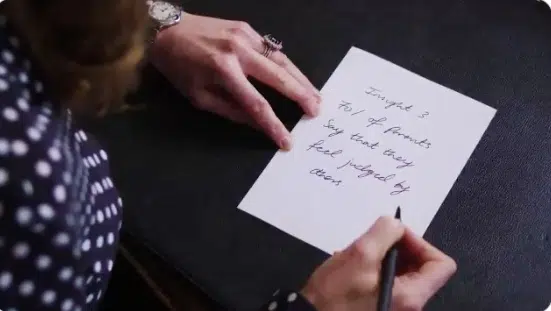 Insight 3
70% of Parents
Say that they
feel judged by
others